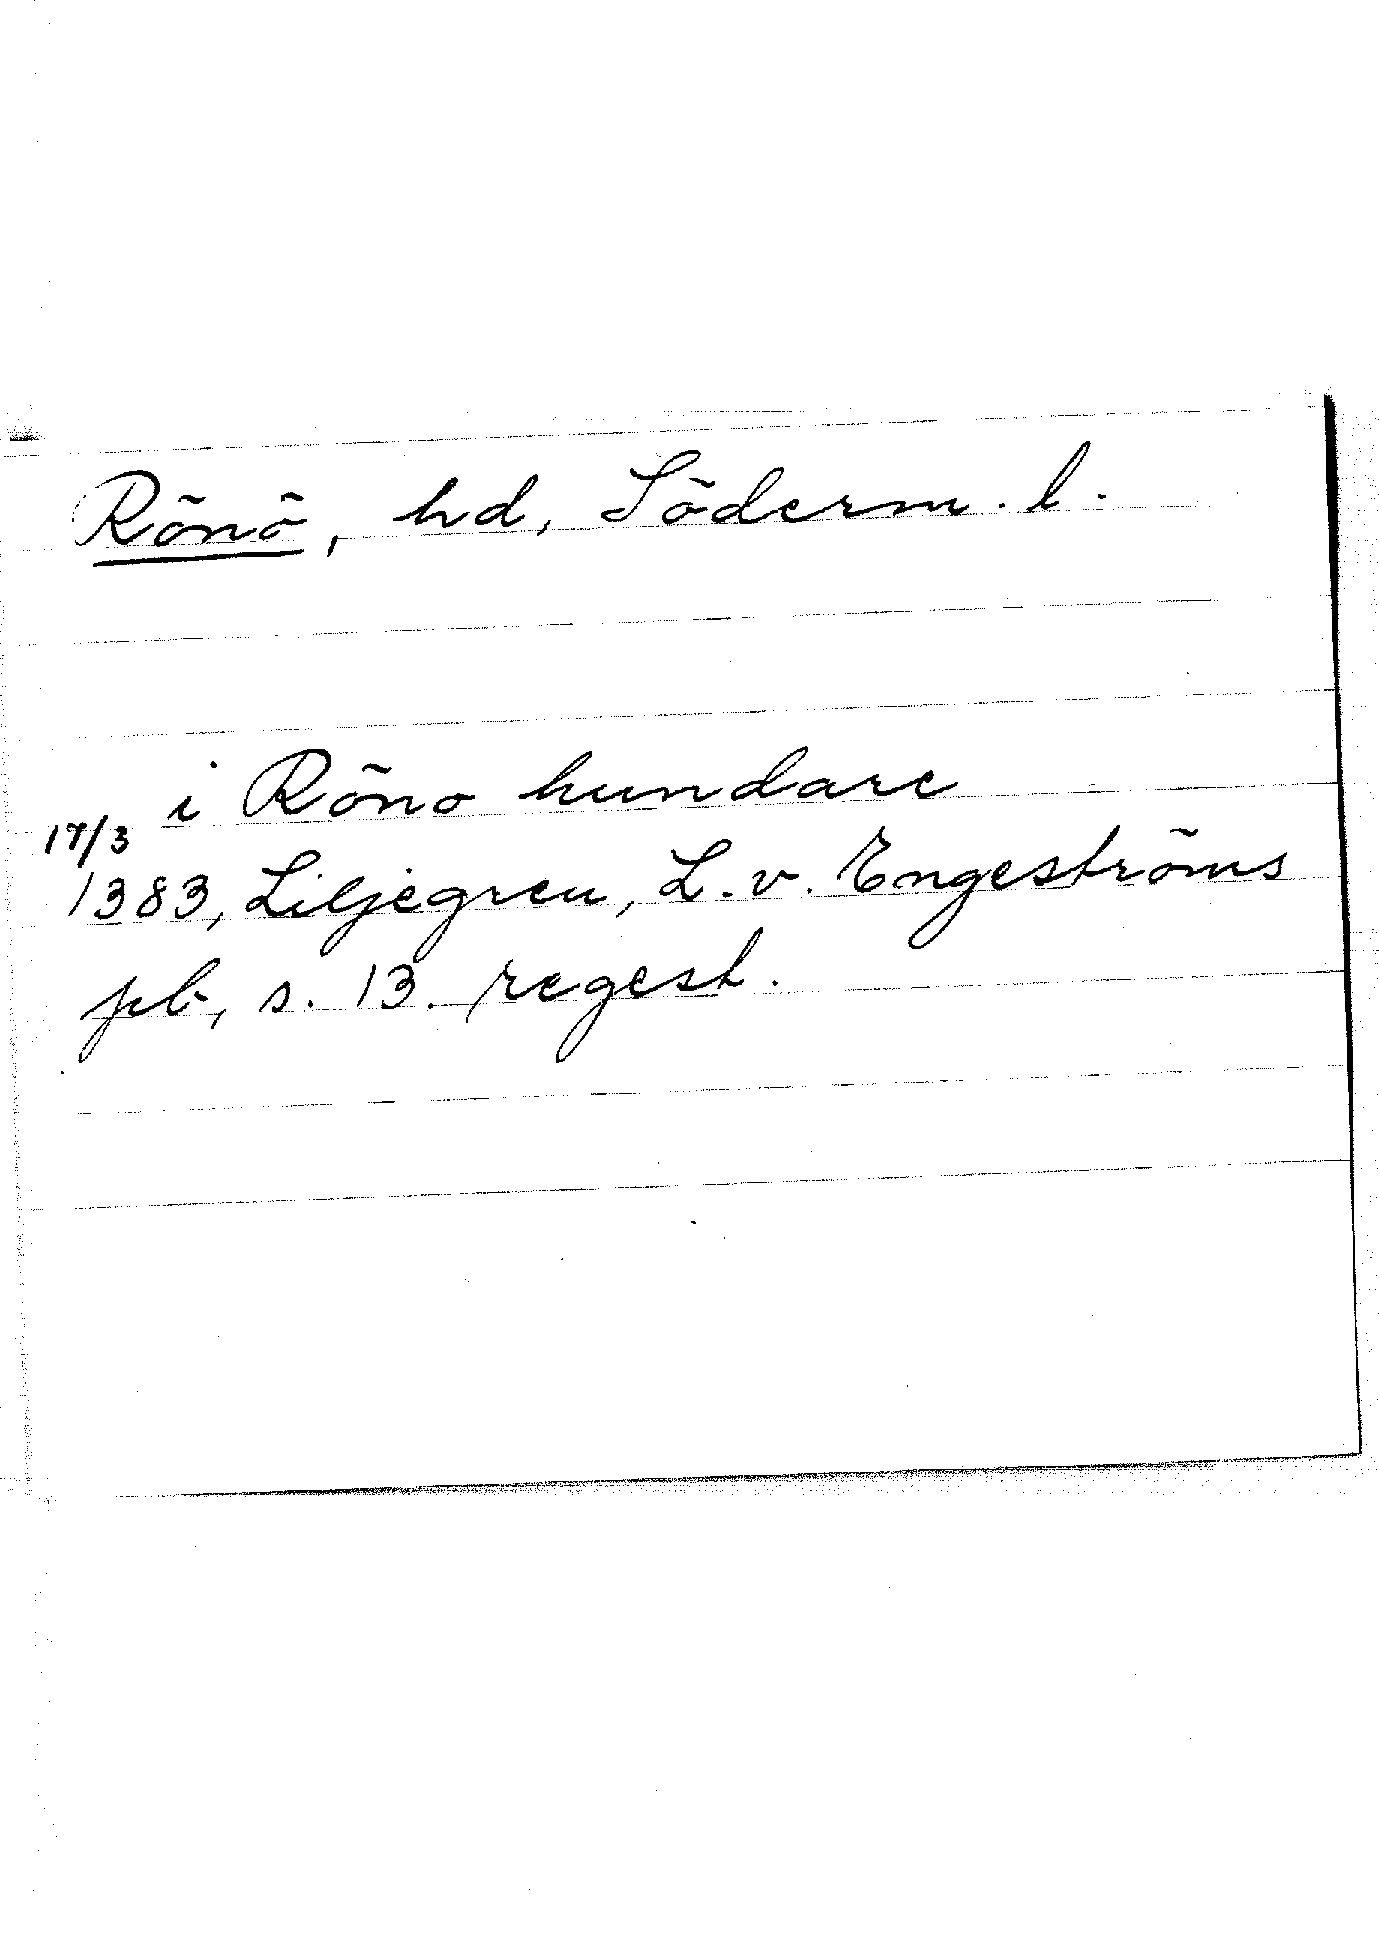 Rönö, hd, Söderm. l.
i Röno hundare
17/3
1383, Liljegren, L. v. Engeströms
pb, s. 13. regest.